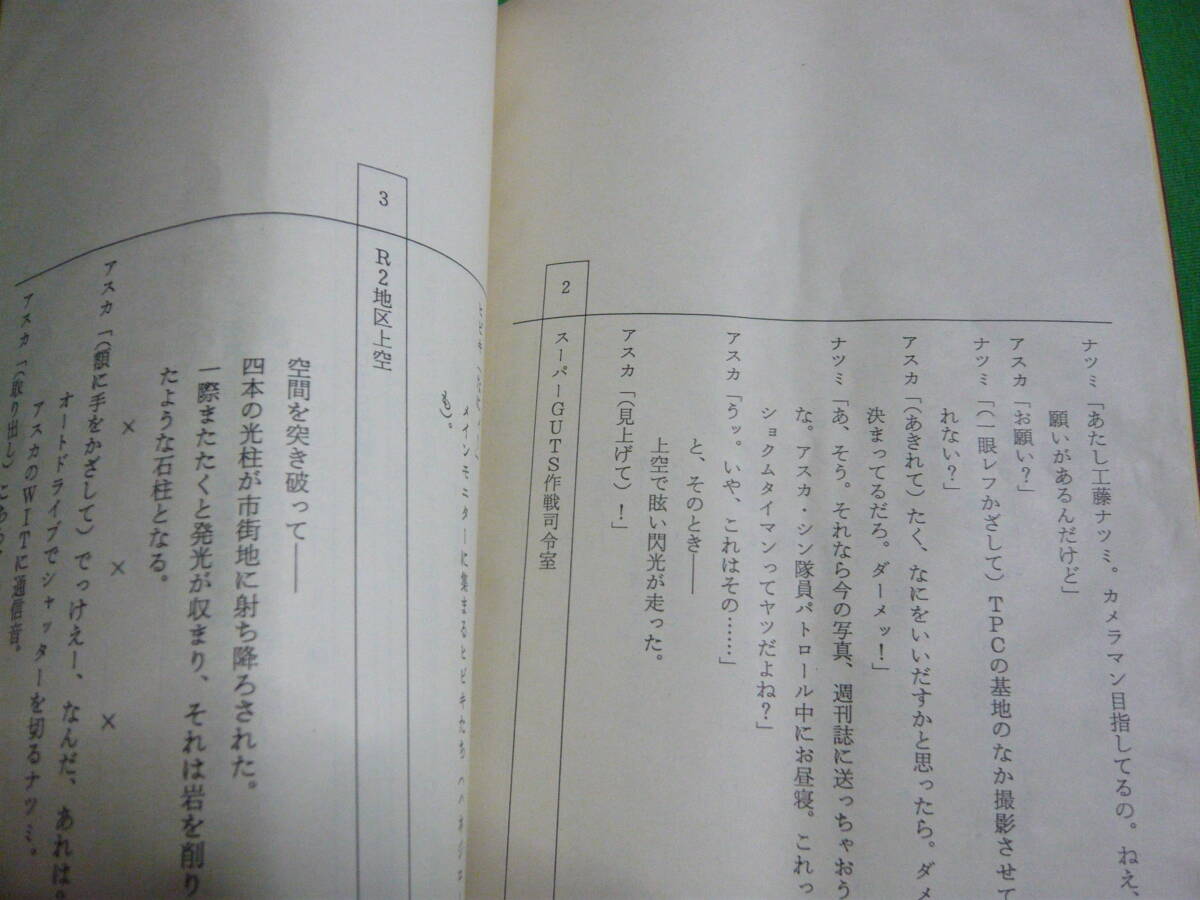 ナツミ「あたし工藤ナツミ。カメラマン目指してるの。ねえ、
願いがあるんだけど」
アスカ「お願い?」
ナツミ「(一眼レフかざして)TPCの基地のなか撮影させて
れない?」
アスカ「(あきれて)たく、なにをいいだすかと思ったら。ダメ
決まってるだろ。ダーメッ!」
ナツミ「あ、そう。それなら今の写真、週刊誌に送っちゃおう
な。アスカ・シン隊員パトロール中にお昼寝。これっ
ショクムタイマンってヤツだよね?」
アスカ「うッ。いや、これはその……」
と、そのとき――
上空で眩い閃光が走った。
アスカ「(見上げて)!」
2 スーパーGUTS作戦司令室
メインモニターに集まるヒビキたち
も)。
3 R2地区上空
空間を突き破って――
四本の光柱が市街地に射ち降ろされた。
一際またたくと発光が収まり、それは岩を削り
たような石柱となる。
× × ×
アスカ「(額に手をかざして)でっけえー、なんだ、あれは?
オートドライブでシャッターを切るナツミ。
アスカのWITに通信音。
アスカ「(取り出し)